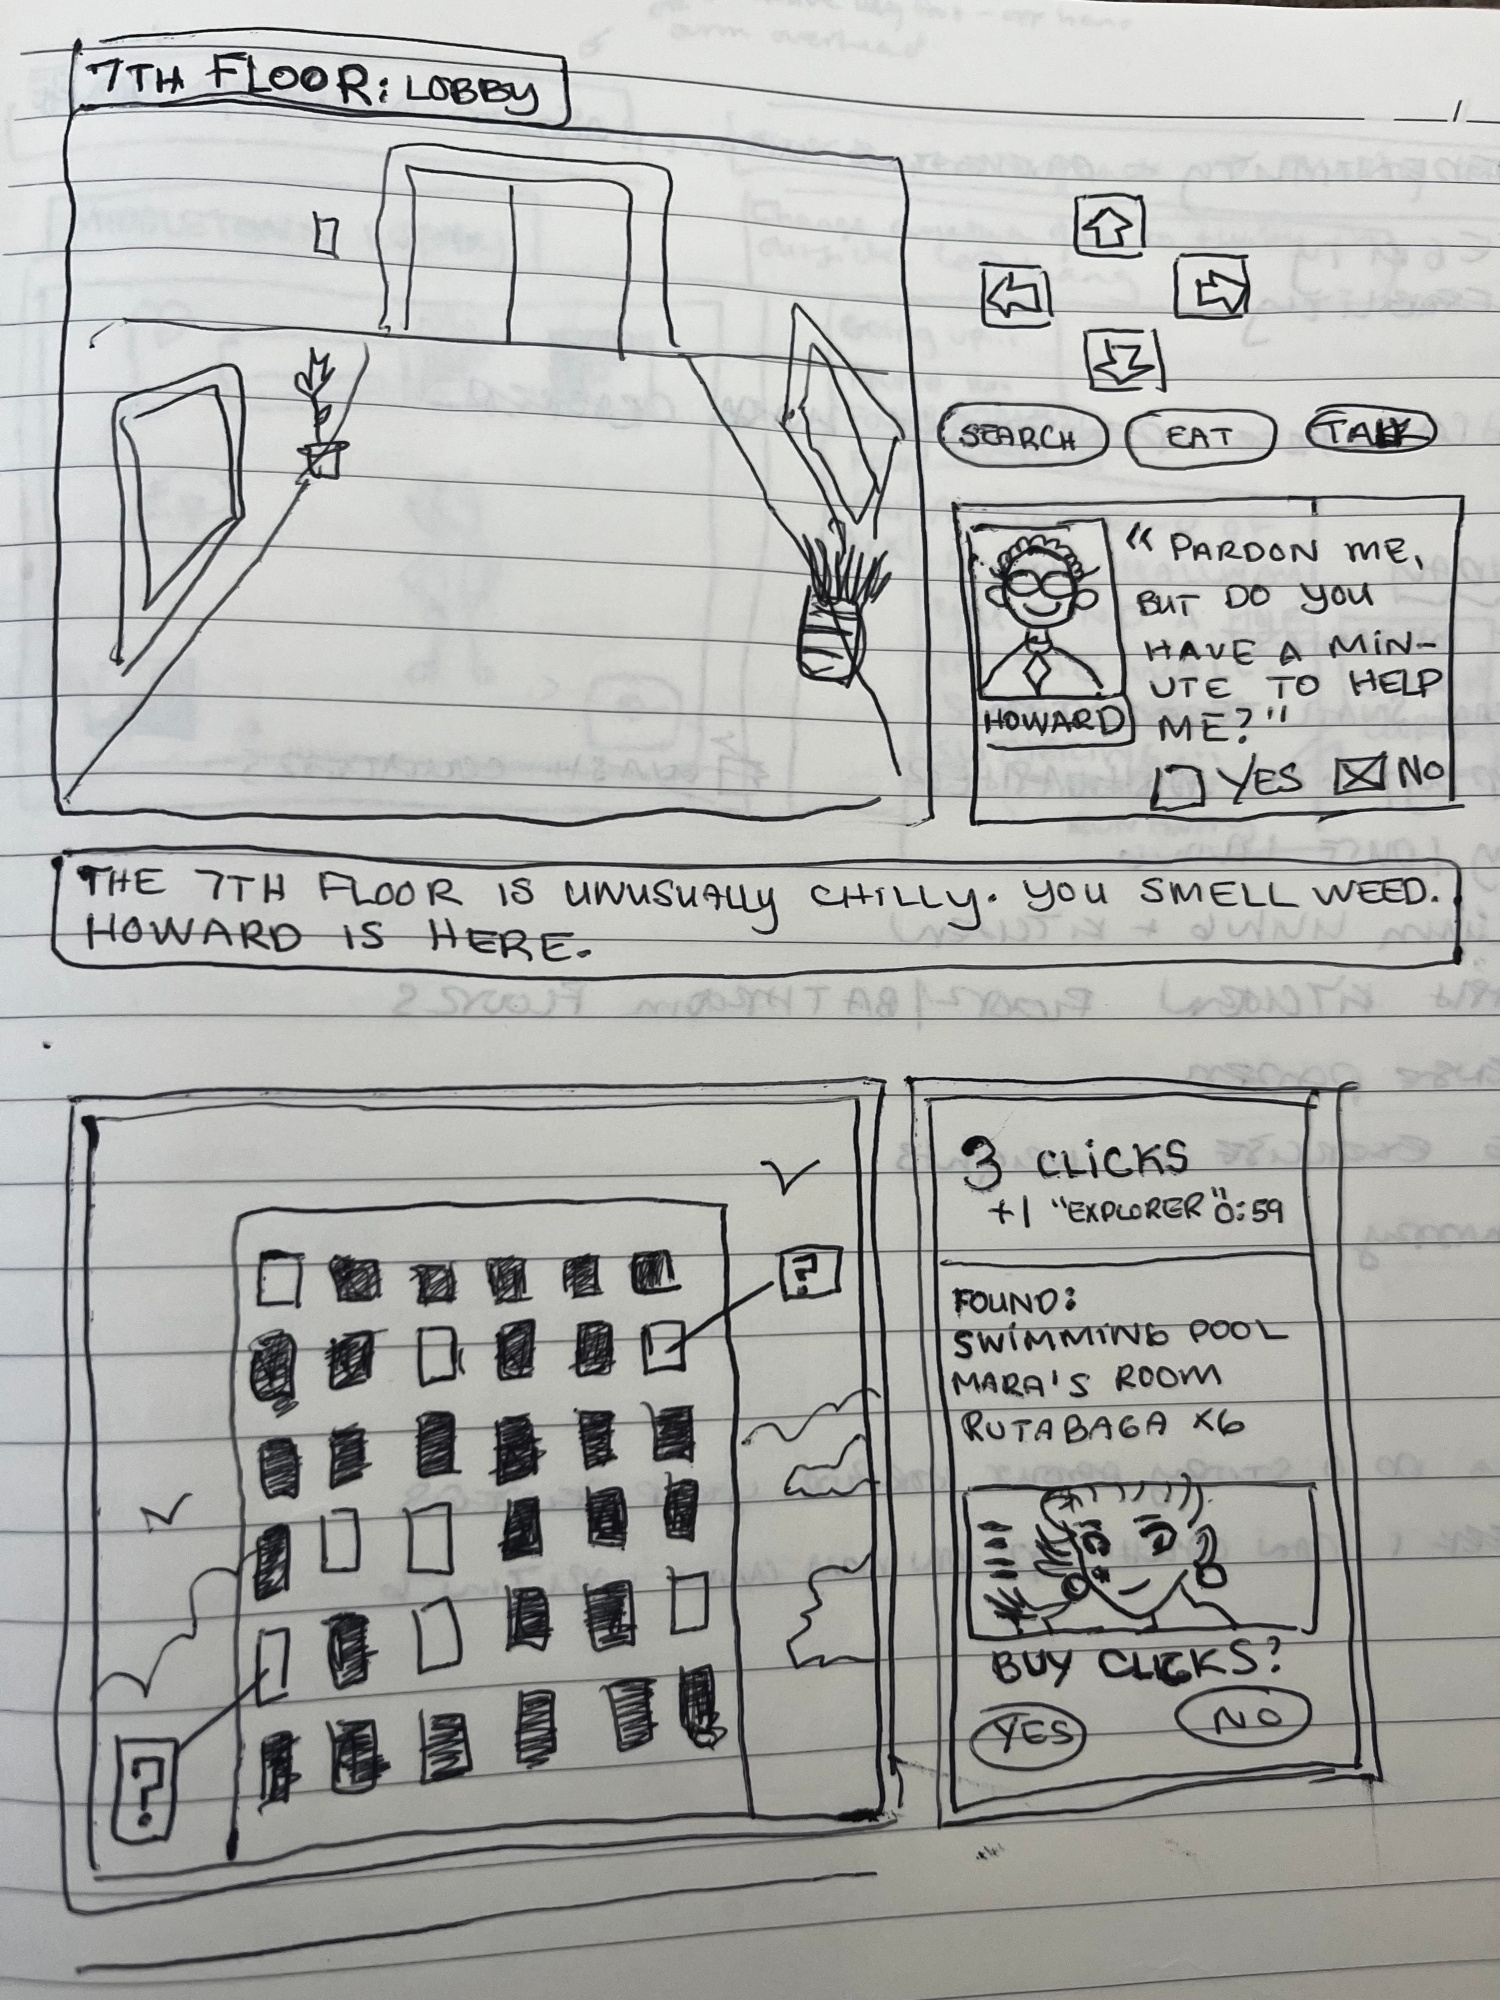 7TH FLOOR: LOBBY
SEARCH
EAT
TALK
"PARDON ME,
BUT DO YOU
HAVE A MIN-
UTE TO HELP
ME?"
HOWARD
YES
NO
THE 7TH FLOOR IS UNUSUALLY CHILLY. YOU SMELL WEED.
HOWARD IS HERE.
?
?
3 CLICKS
+1 "EXPLORER" 0:59
FOUND:
SWIMMING POOL
MARA'S ROOM
RUTABAGA X6
BUY CLICKS?
YES
NO